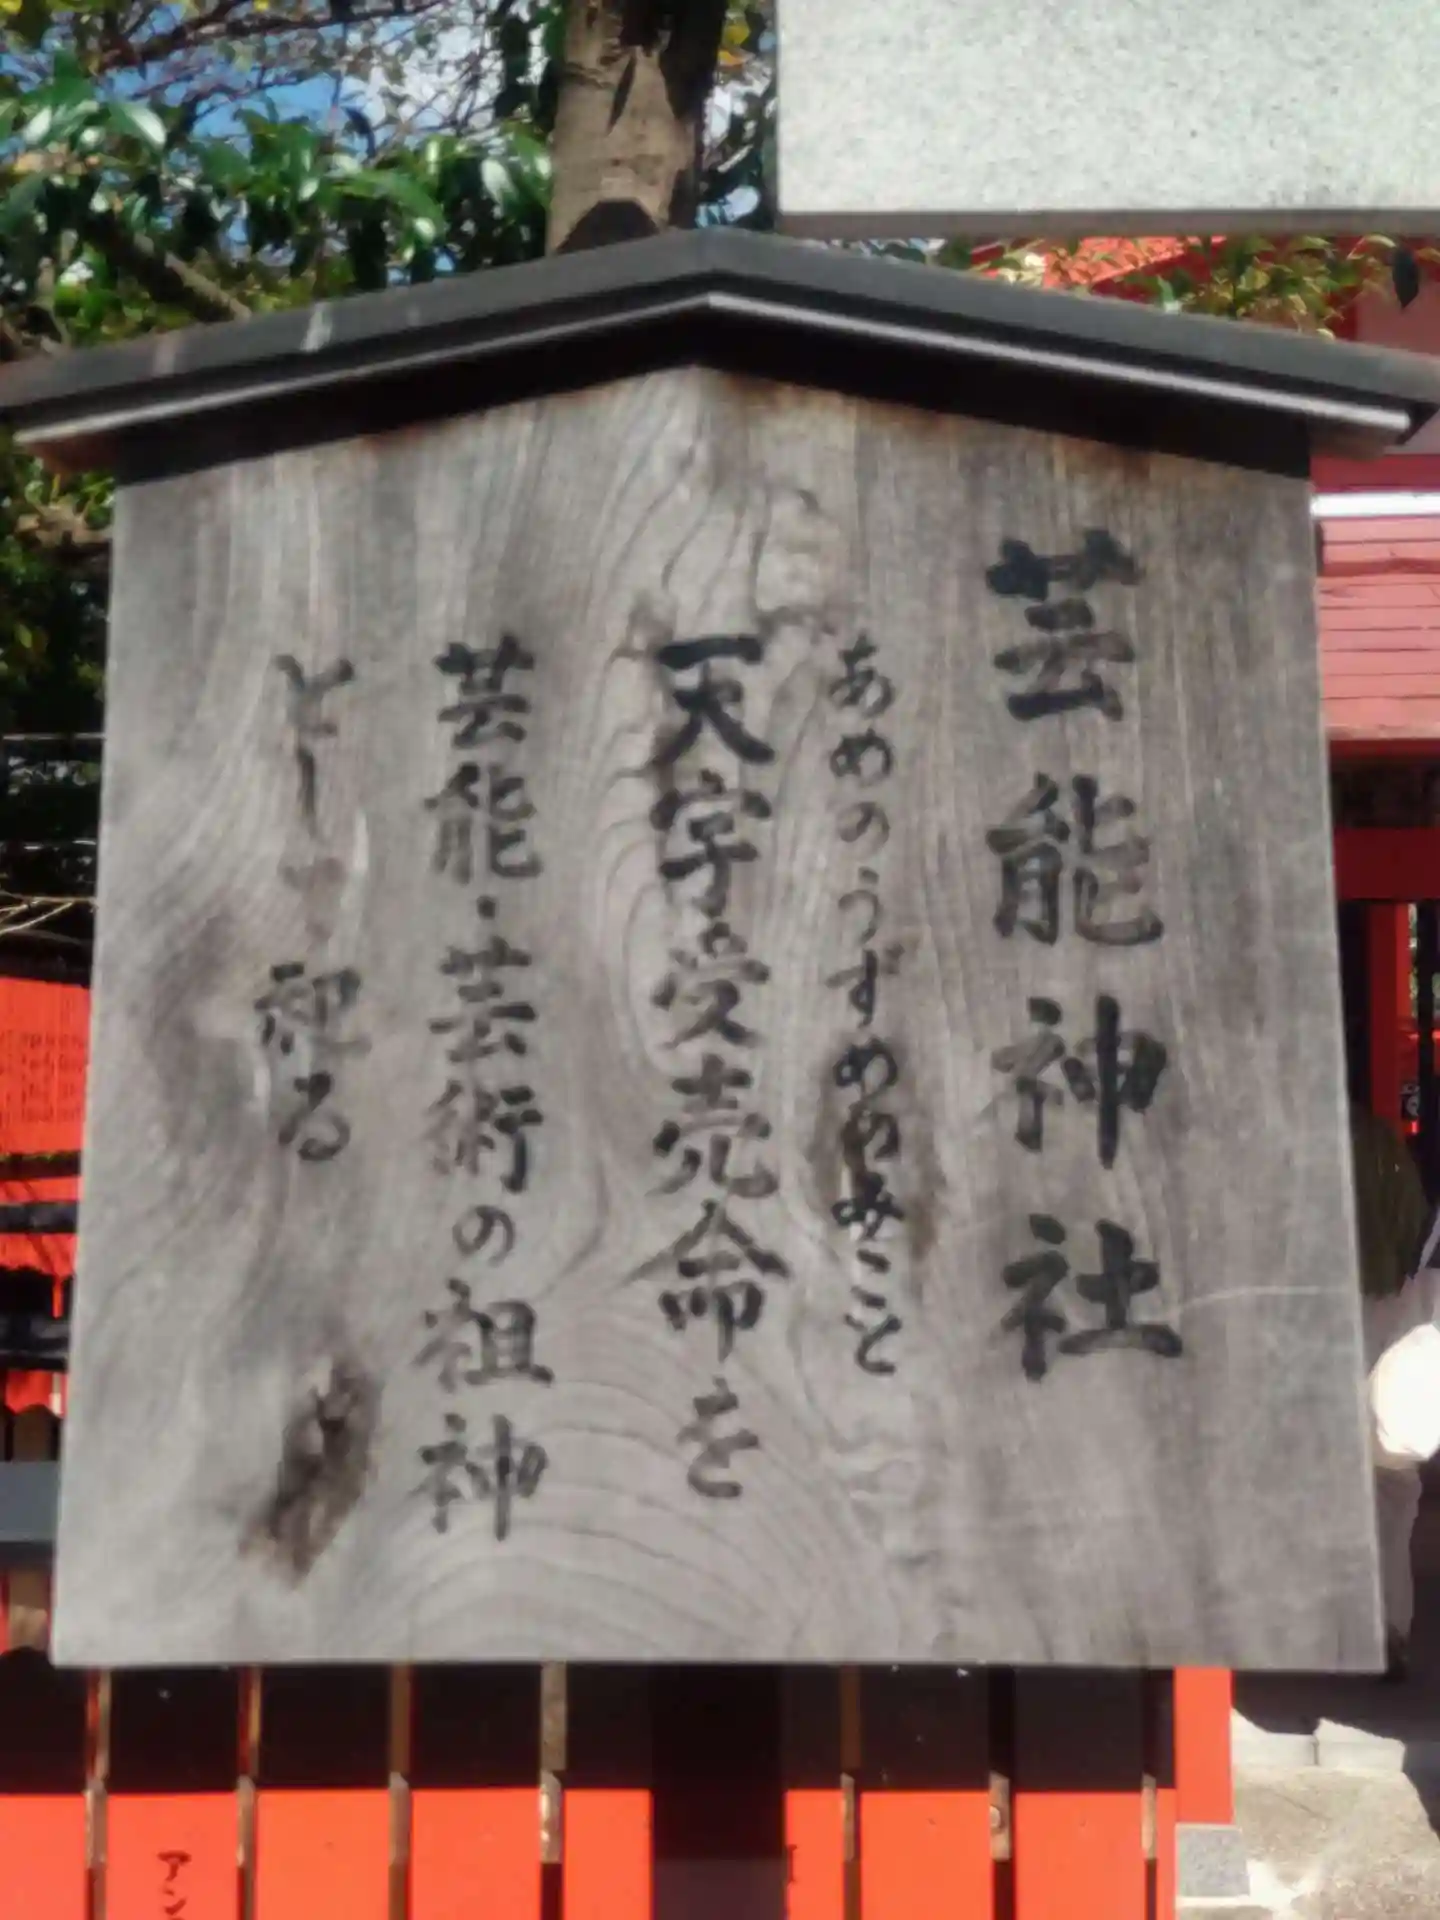 芸能神社
あめのうずめのみこと
天宇受売命を
芸能・芸術の祖神
として祀る
アン